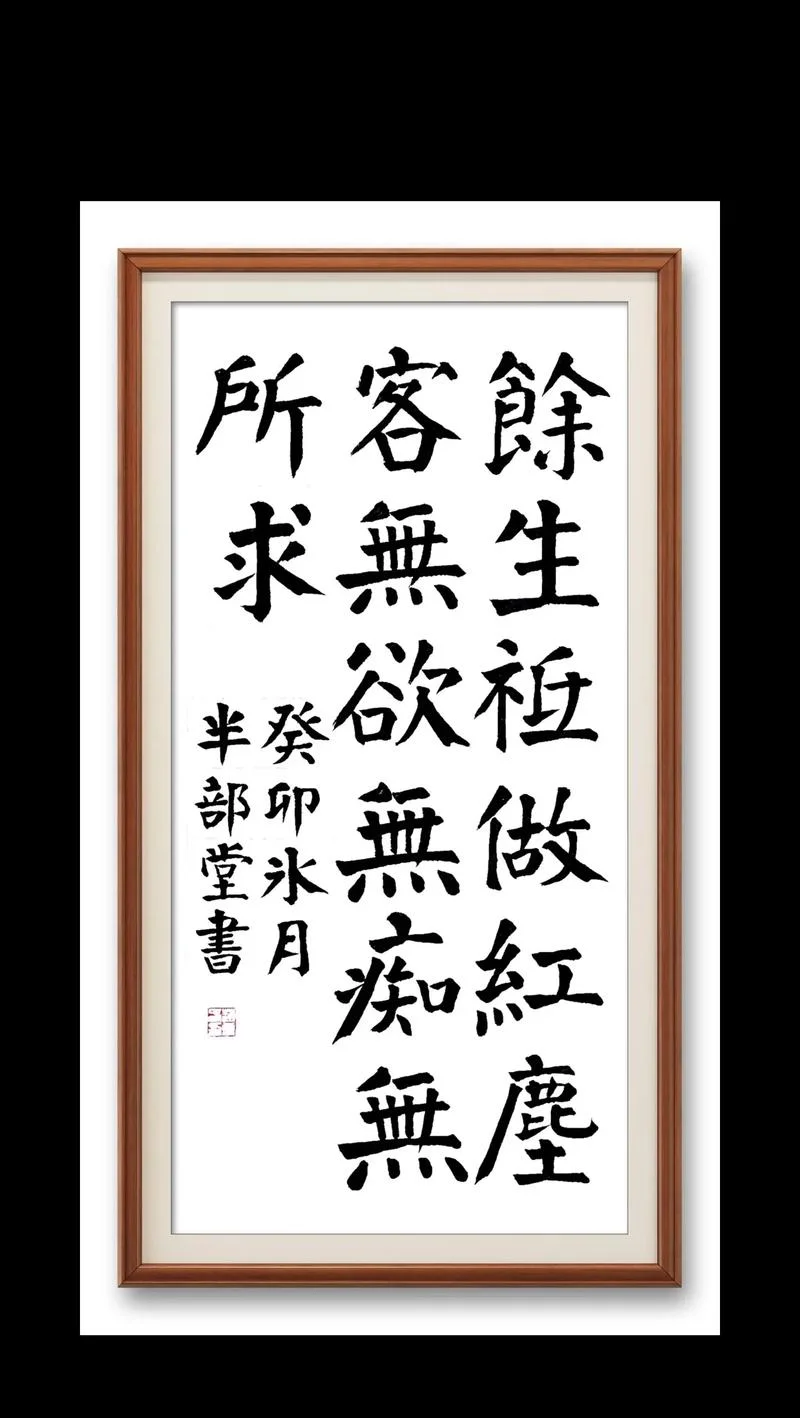 餘生祗做紅塵
客無欲無痴無
所求
癸卯氷月
半部堂書